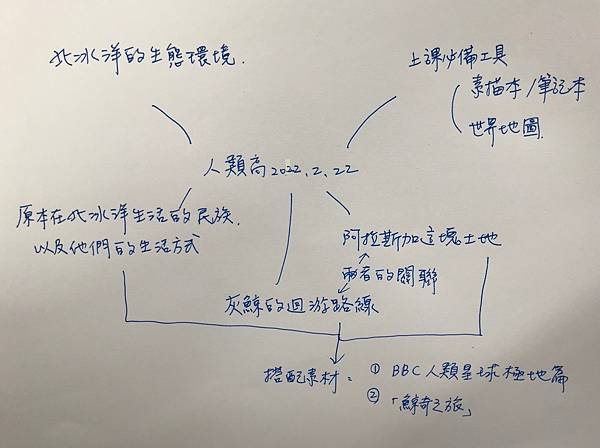 北冰洋的生態環境.
上課必備工具
素描本/筆記本
世界地圖.
人類高2022.2.22
原本在北冰洋生活的民族.
以及他們的生活方式
阿拉斯加這塊土地
兩者的關聯
灰鯨的迴游路線
搭配素材：① BBC人類星球極地篇
②「鯨奇之旅」